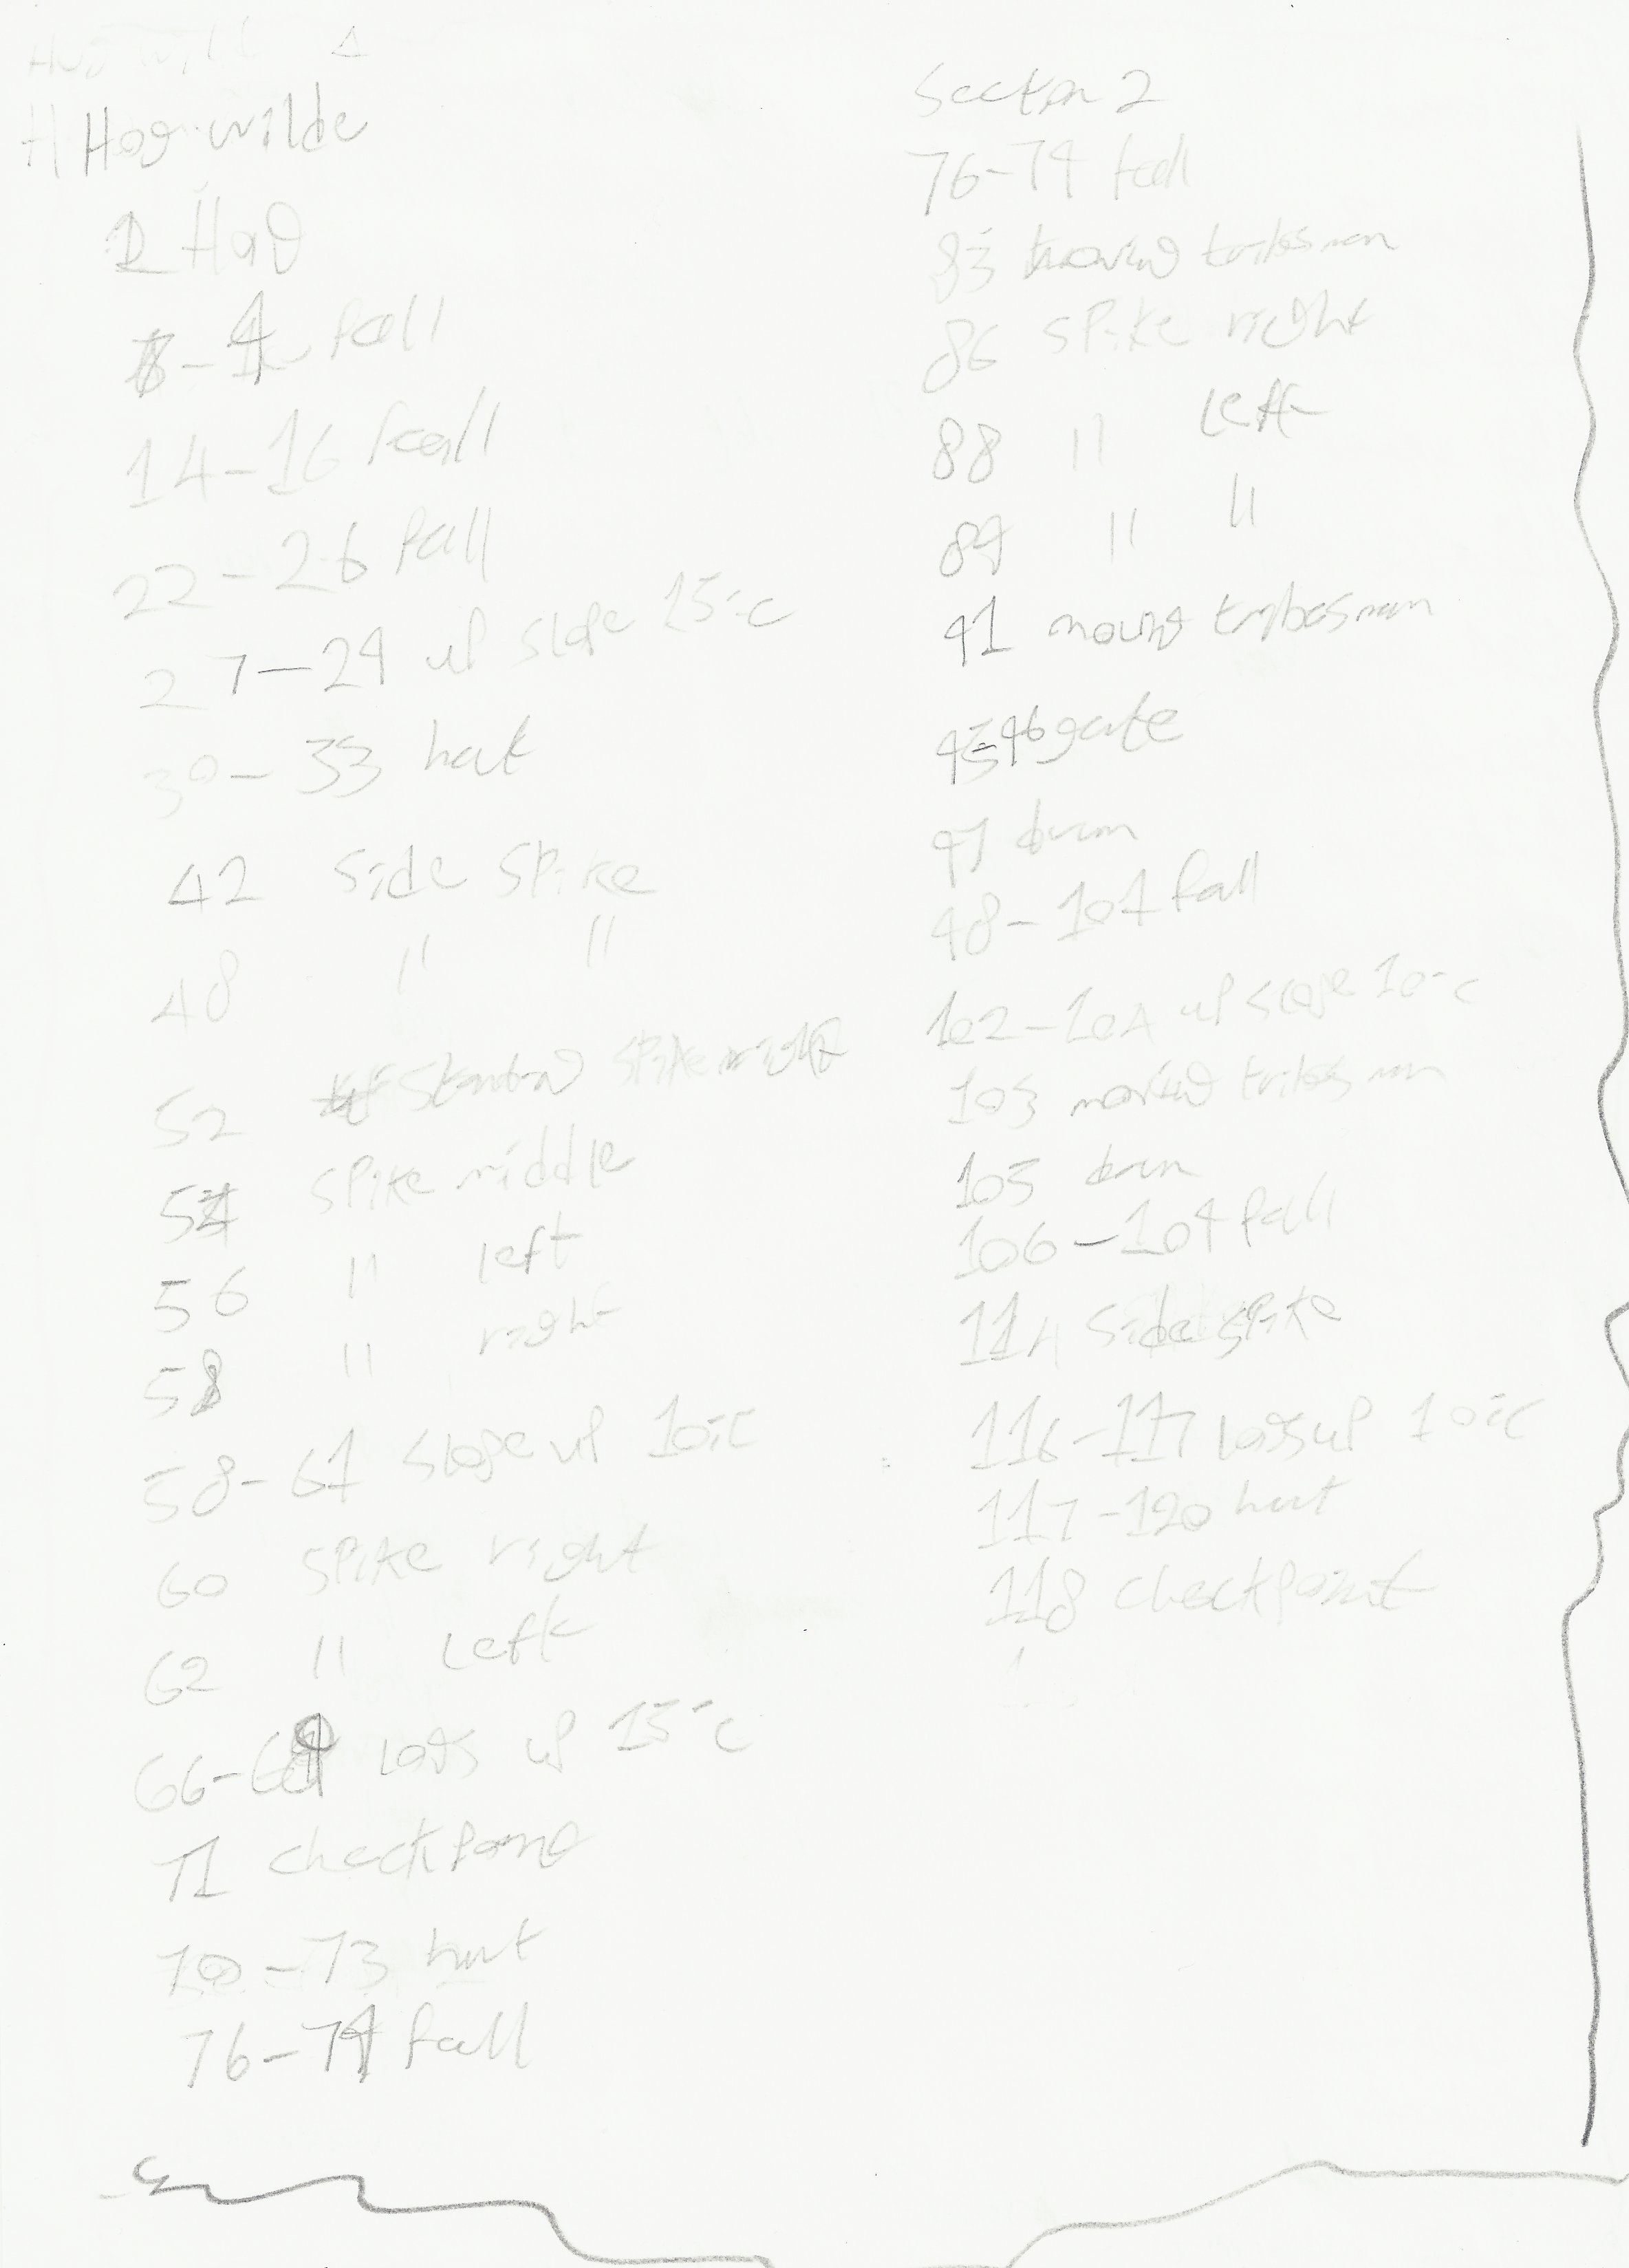 Hog wild
Hog wilde
1 Hog
6-9 fall
14-16 fall
22-26 fall
27-29 up slope 15°c
30-33 hut
42 side spike
48 " "
52 standing spike right
54 spike middle
56 " left
58 " right
58-61 slope up 10°c
60 spike right
62 " left
66-69 logs up 15°c
71 checkpoint
70-73 hut
76-79 fall
Section 2
76-79 fall
83 moving tribesman
86 spike right
88 " left
89 " "
91 moving tribesman
95-96 gate
97 drum
98-101 fall
102-104 up slope 10°c
103 moving tribesman
105 drum
106-109 fall
114 side spike
116-117 logs up 10°c
117-120 hut
118 checkpoint